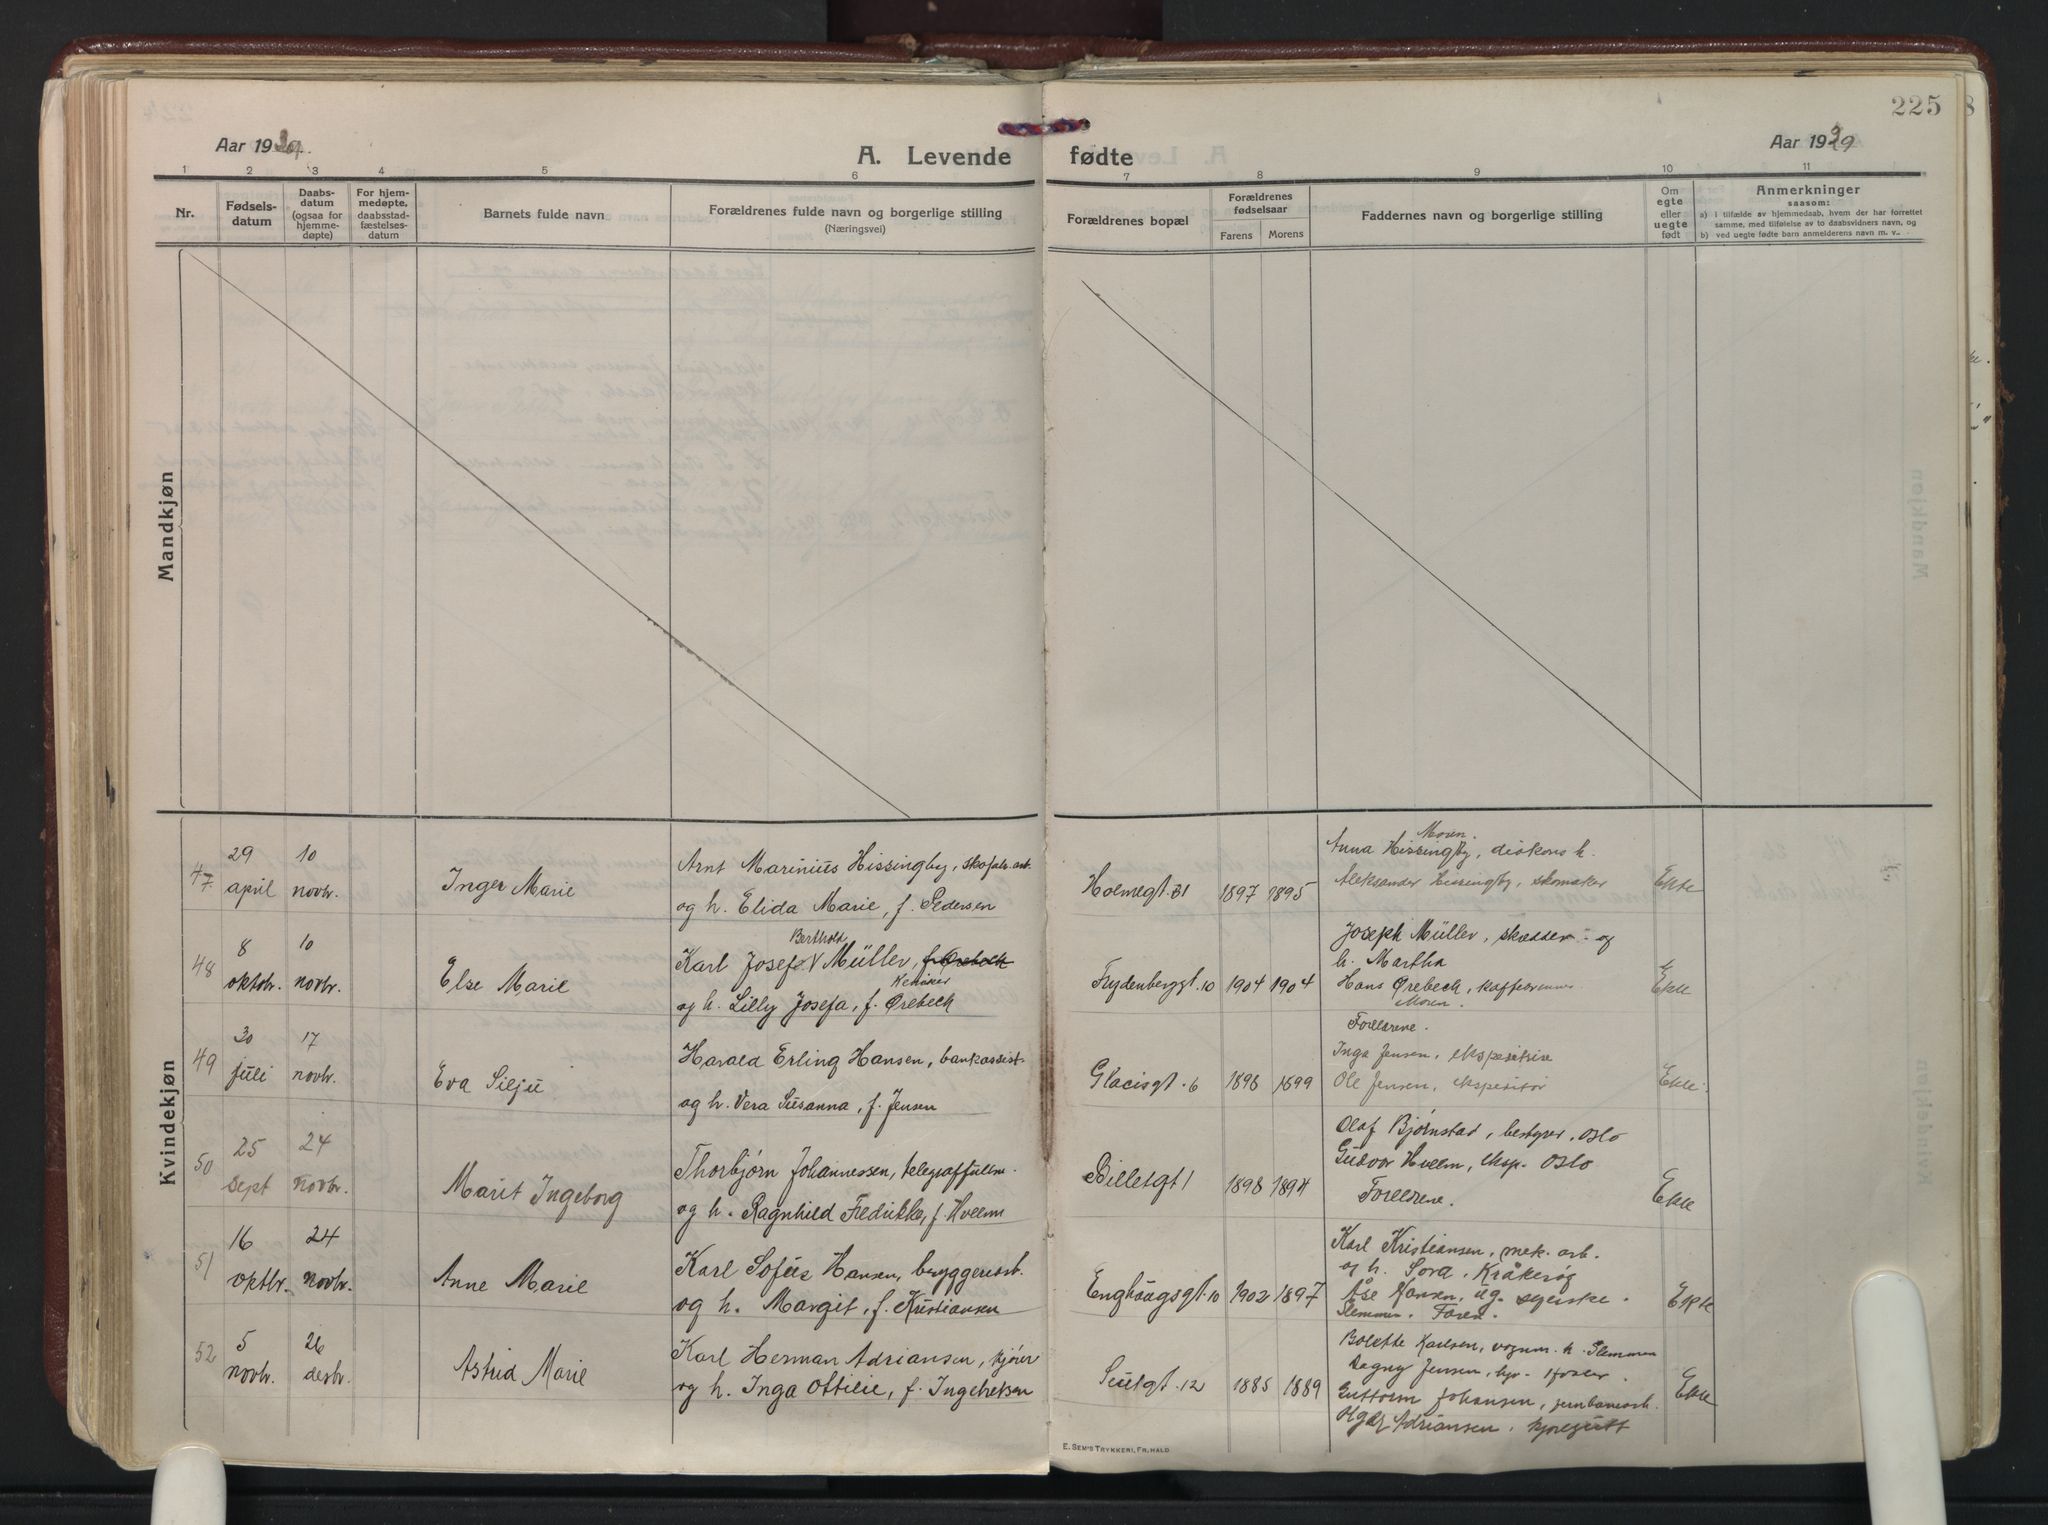 225
Aar 1929
A. Levende fødte
Aar 1929
1 2 3 4 5 6 7 8 9 10 11
Nr.
Fødsels-
datum
Daabs-
datum
(ogsaa for
hjemme-
døpte)
For hjem-
medøpte,
daabsstad-
fæstelses-
datum
Barnets fulde navn
Forældrenes fulde navn og borgerlige stilling
(Næringsvei)
Forældrenes bopæl
Forældrenes
fødselsaar
Farens Morens
Faddernes navn og borgerlige stilling
Om
egte
eller
uegte
født
Anmerkninger
saasom:
a) i tilfælde av hjemmedaab, hvem der har forrettet
samme, med tilføielse av to daabsvidners navn, og
b) ved uegte fødte barn anmelderens navn m. v..
Mandkjøn
Kvindekjøn
47
29
april
10
novbr.
Inger Marie
Arnt Marinius Hissingby, skofabr. arb.
og h. Elida Marie, f. Pedersen
Holmegt. 31 1897 1895
Moren.
Anna Hissingby, diskons h.
Aleksander Hissingby, skomaker
Ekte
48
8
oktbr.
10
novbr.
Else Marie
Berthold
Karl Josef V Müller, f. Ørebech
Kemiker
og h. Lilly Josefa, f. Ørebech
Frydenberggt. 10 1904 1904
Joseph Müller, skrædder og
h. Martha
Hans Ørebech, kaffebrenner
Moren.
Ekte
49
30
juli
17
novbr.
Eva Silju
Harald Erling Hansen, bankassist.
og h. Vera Susanna, f. Jensen
Glacisgt. 6 1898 1899
Forældrene.
Inga Jensen, ekspeditrise
Ole Jensen, ekspeditør
Ekte.
50
25
sept
24
novbr.
Marit Ingeborg
Thorbjørn Johannessen, telegraffullm.
og h. Ragnhild Fredrikke, f. Hveem
Billetgt 1 1898 1894
Olaf Bjørnstad, bestyrer, Oslo
Gudvor Hveem, eksp. Oslo
Forældrene.
Ekte
51
16
oktbr.
24
novbr.
Anne Marie
Karl Sofus Hansen, bryggeriarb.
og h. Margit, f. Kristiansen
Enghaugsgt. 10 1902 1897
Karl Kristiansen, mek. arb.
og h. Sora, Kråkerøy
Åse Hansen, ug. syerske.
Glemmen. Faren.
Ekte
52
5
novbr.
26
desbr.
Astrid Marie
Karl Herman Adriansen, kjører
og h. Inga Ottilie, f. Ingebretsen
1885 1889
Bolette Karlsen, vognm. h. Glemmen
Dagny Jensen,
Guttorm Johansen, jernbanearb.
Adriansen, kjøregutt
Ekte
E. SEM'S TRYKKERI, FR.HALD